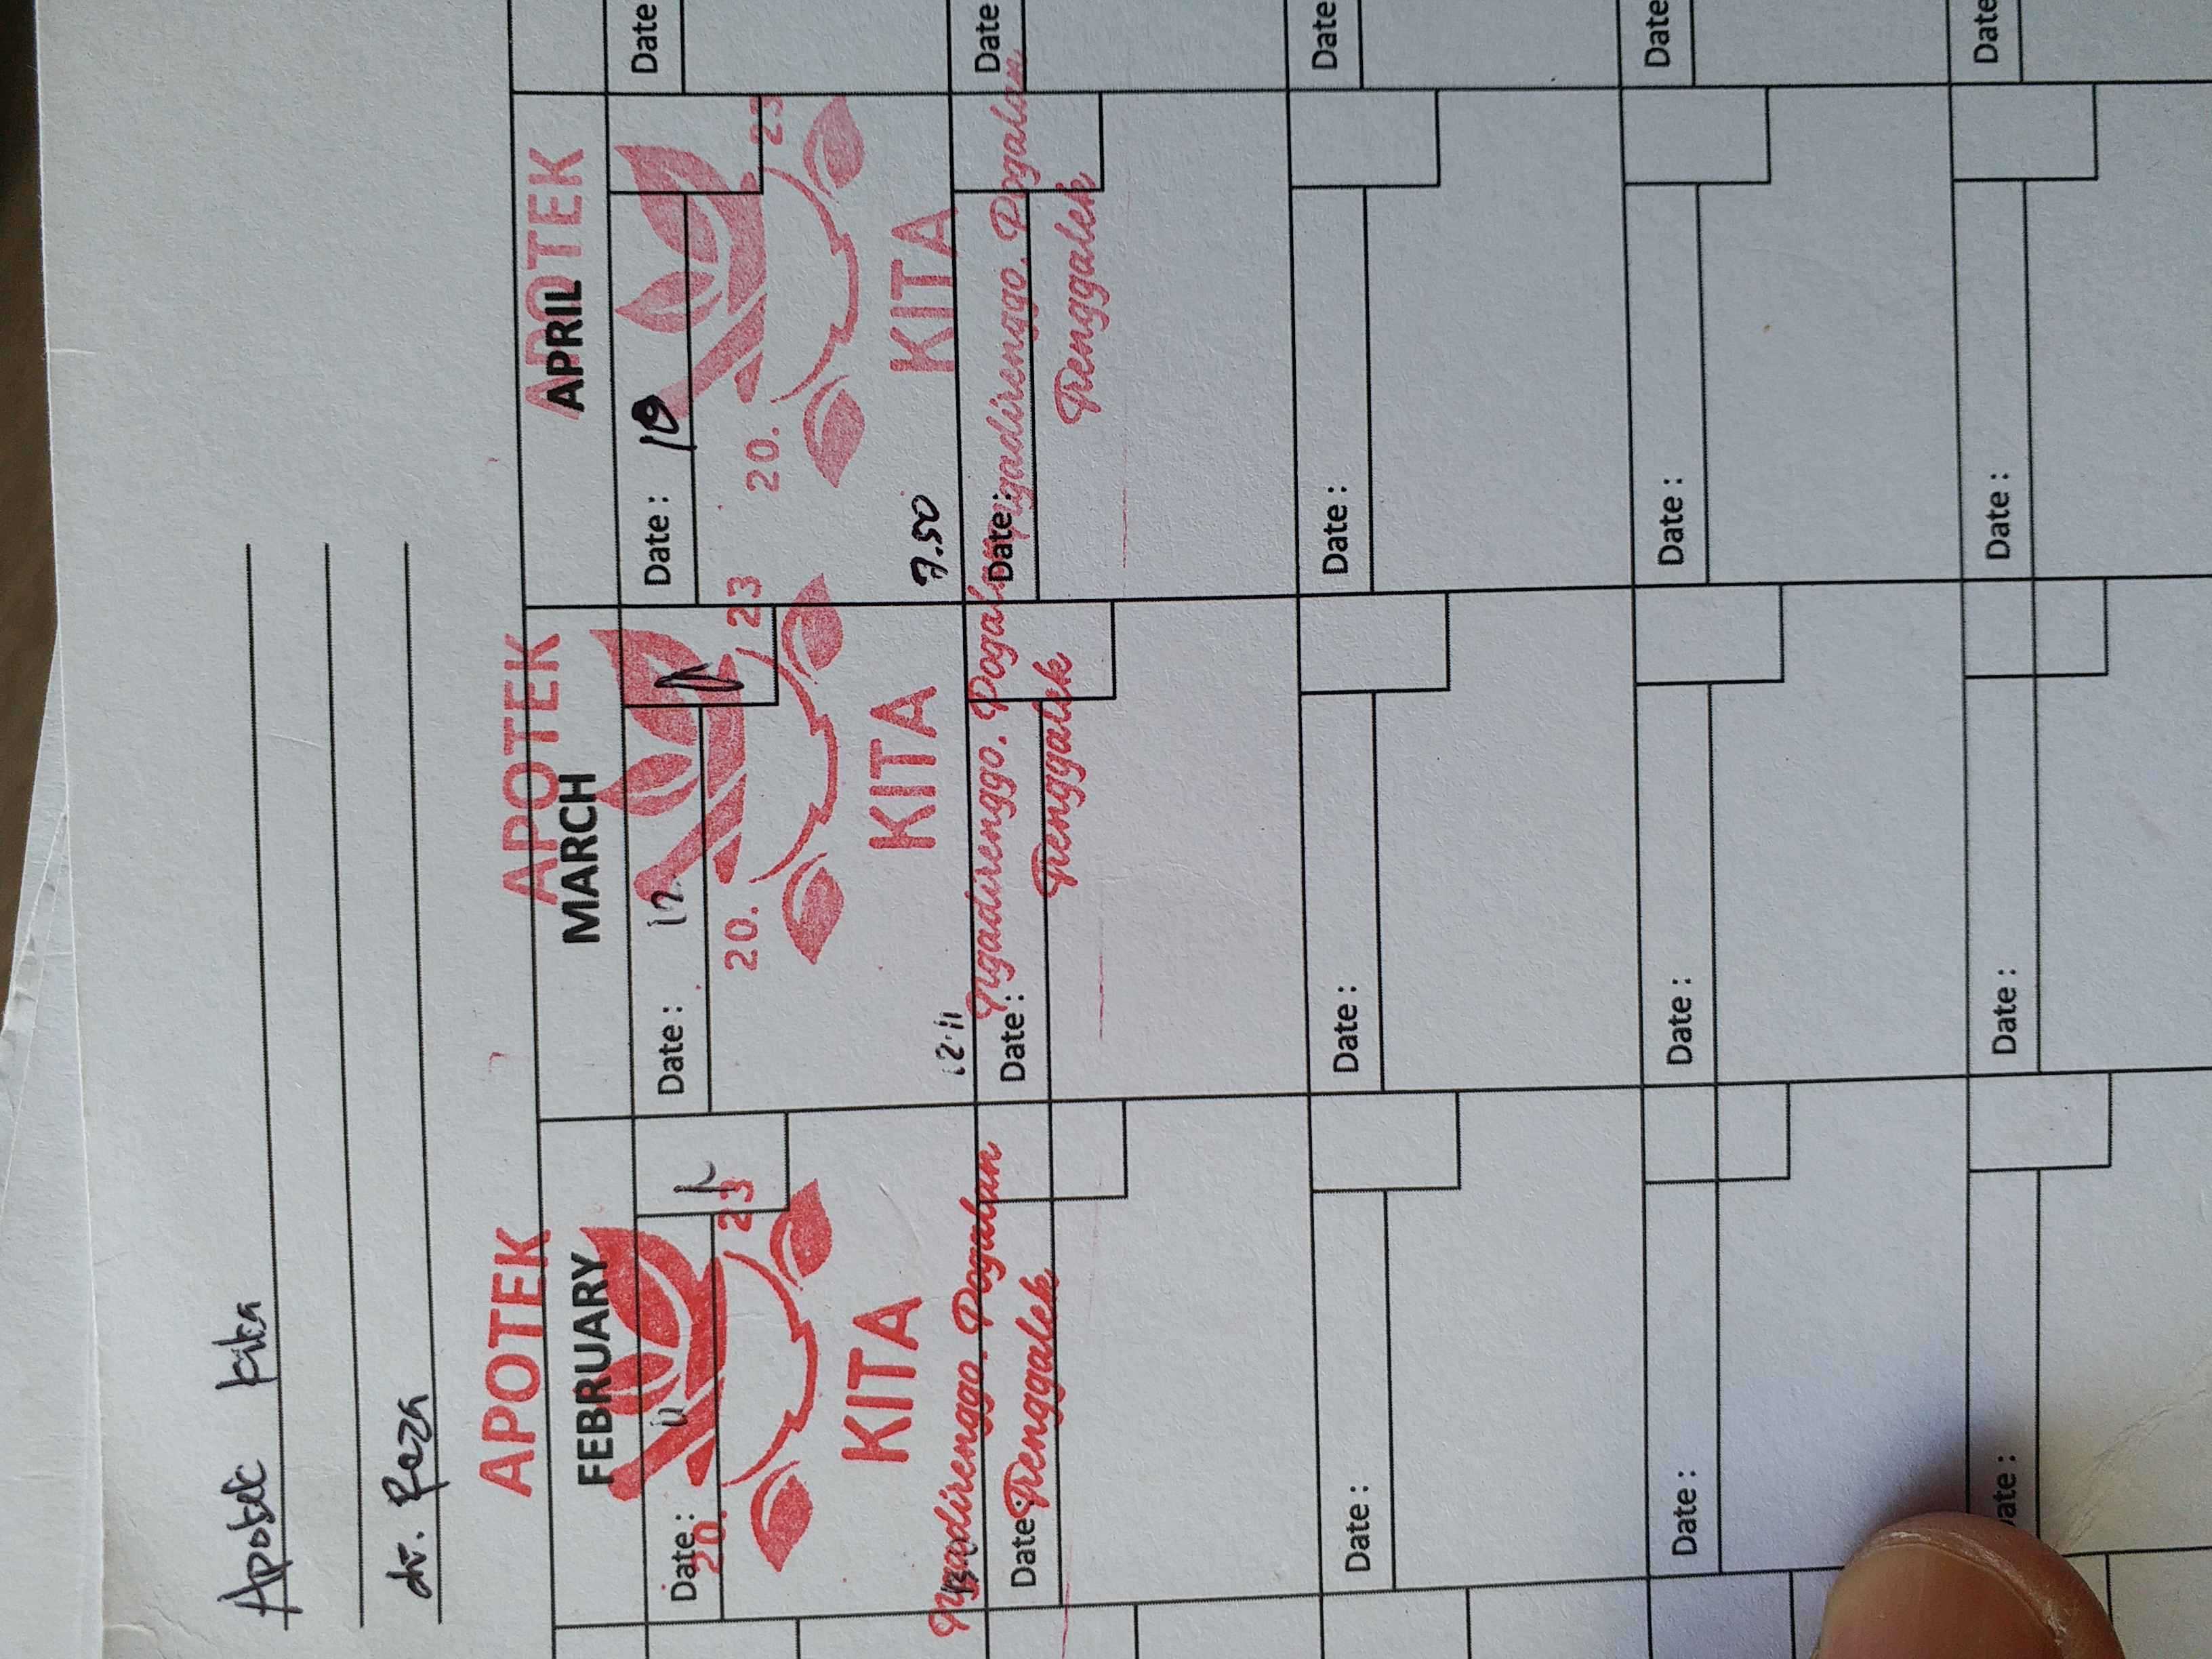 Apotek kita
dr. Reza
APOTEK APOTEK APOTEK
FEBRUARY MARCH APRIL
Date : 11 Date : 12 Date : 10 Date
20. 23 20. 23 20. 23
KITA KITA KITA
12.11 7.50
Ngadirenggo. Pogalan Ngadirenggo. Pogalan Ngadirenggo. Pogalan
Trenggalek Trenggalek Trenggalek
Date : Date : Date : Date
Date : Date : Date : Date
Date : Date : Date : Date
Date : Date : Date : Date